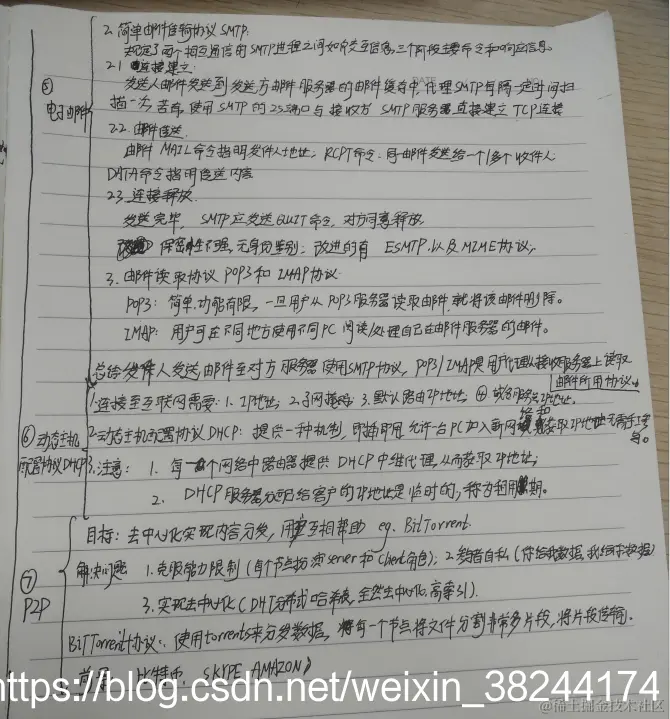 2. 简单邮件传输协议 SMTP:
规定了两个相互通信的SMTP进程之间如何交互信息,三个阶段主要命令和响应信息。
2.1 连接建立:
⑤ 发送人邮件发送到发送方邮件服务器的邮件缓存中,代理SMTP每隔一定时间扫
电子邮件 描一次,若有,使用SMTP的25端口与接收方 SMTP服务器直接建立TCP连接
2.2. 邮件传送
由邮件 MAIL命令指明发件人地址; RCPT命令:将邮件发送给一个/多个收件人
DATA命令指明传送内容
2.3. 连接释放.
发送完毕, SMTP应发送QUIT命令, 对方同意释放.
保密性不强, 无身份鉴别; 改进的有 ESMTP.以及MIME协议,
3. 邮件读取协议 POP3和 IMAP协议:
POP3: 简单.功能有限, 一旦用户从POP3服务器读取邮件,就将该邮件删除。
IMAP: 用户可在不同地方使用不同PC阅读/处理自己在邮件服务器的邮件。
总结 发件人发送邮件至对方服务器使用SMTP协议, POP3/IMAP是用户代理从接收服务器上读取
邮件所用协议
1.连接至互联网需要: 1. IP地址; 2.子网掩码; 3.默认路由IP地址; ④ 域名服务器IP地址.
⑥动态主机 2.动态主机配置协议DHCP: 提供一种机制, 即插即用.允许一台PC加入新网络和获取IP地址无需手工
配置协议DHCP 3.注意: 1. 每一个网络中路由器提供 DHCP 中继代理,从而获取IP地址;
2. DHCP服务器分配给客户的IP地址是临时的,称为租用期.
目标: 去中心化实现内容分发, 用户互相帮助 eg. BitTorrent.
⑦ 解决问题 1.克服能力限制(每个节点扮演server和client角色); 2.参与者自私(你给我数据,我给你数据)
P2P 3. 实现去中心化(DHT分布式哈希表,全然去中心化,高索引).
BitTorrent协议: 使用torrents来分发数据, 将每一个节点将文件分割非常多片段,将片段传输.
比特币, SKYPE, AMAZON
https://blog.csdn.net/weixin_38244174
@稀土掘金技术社区